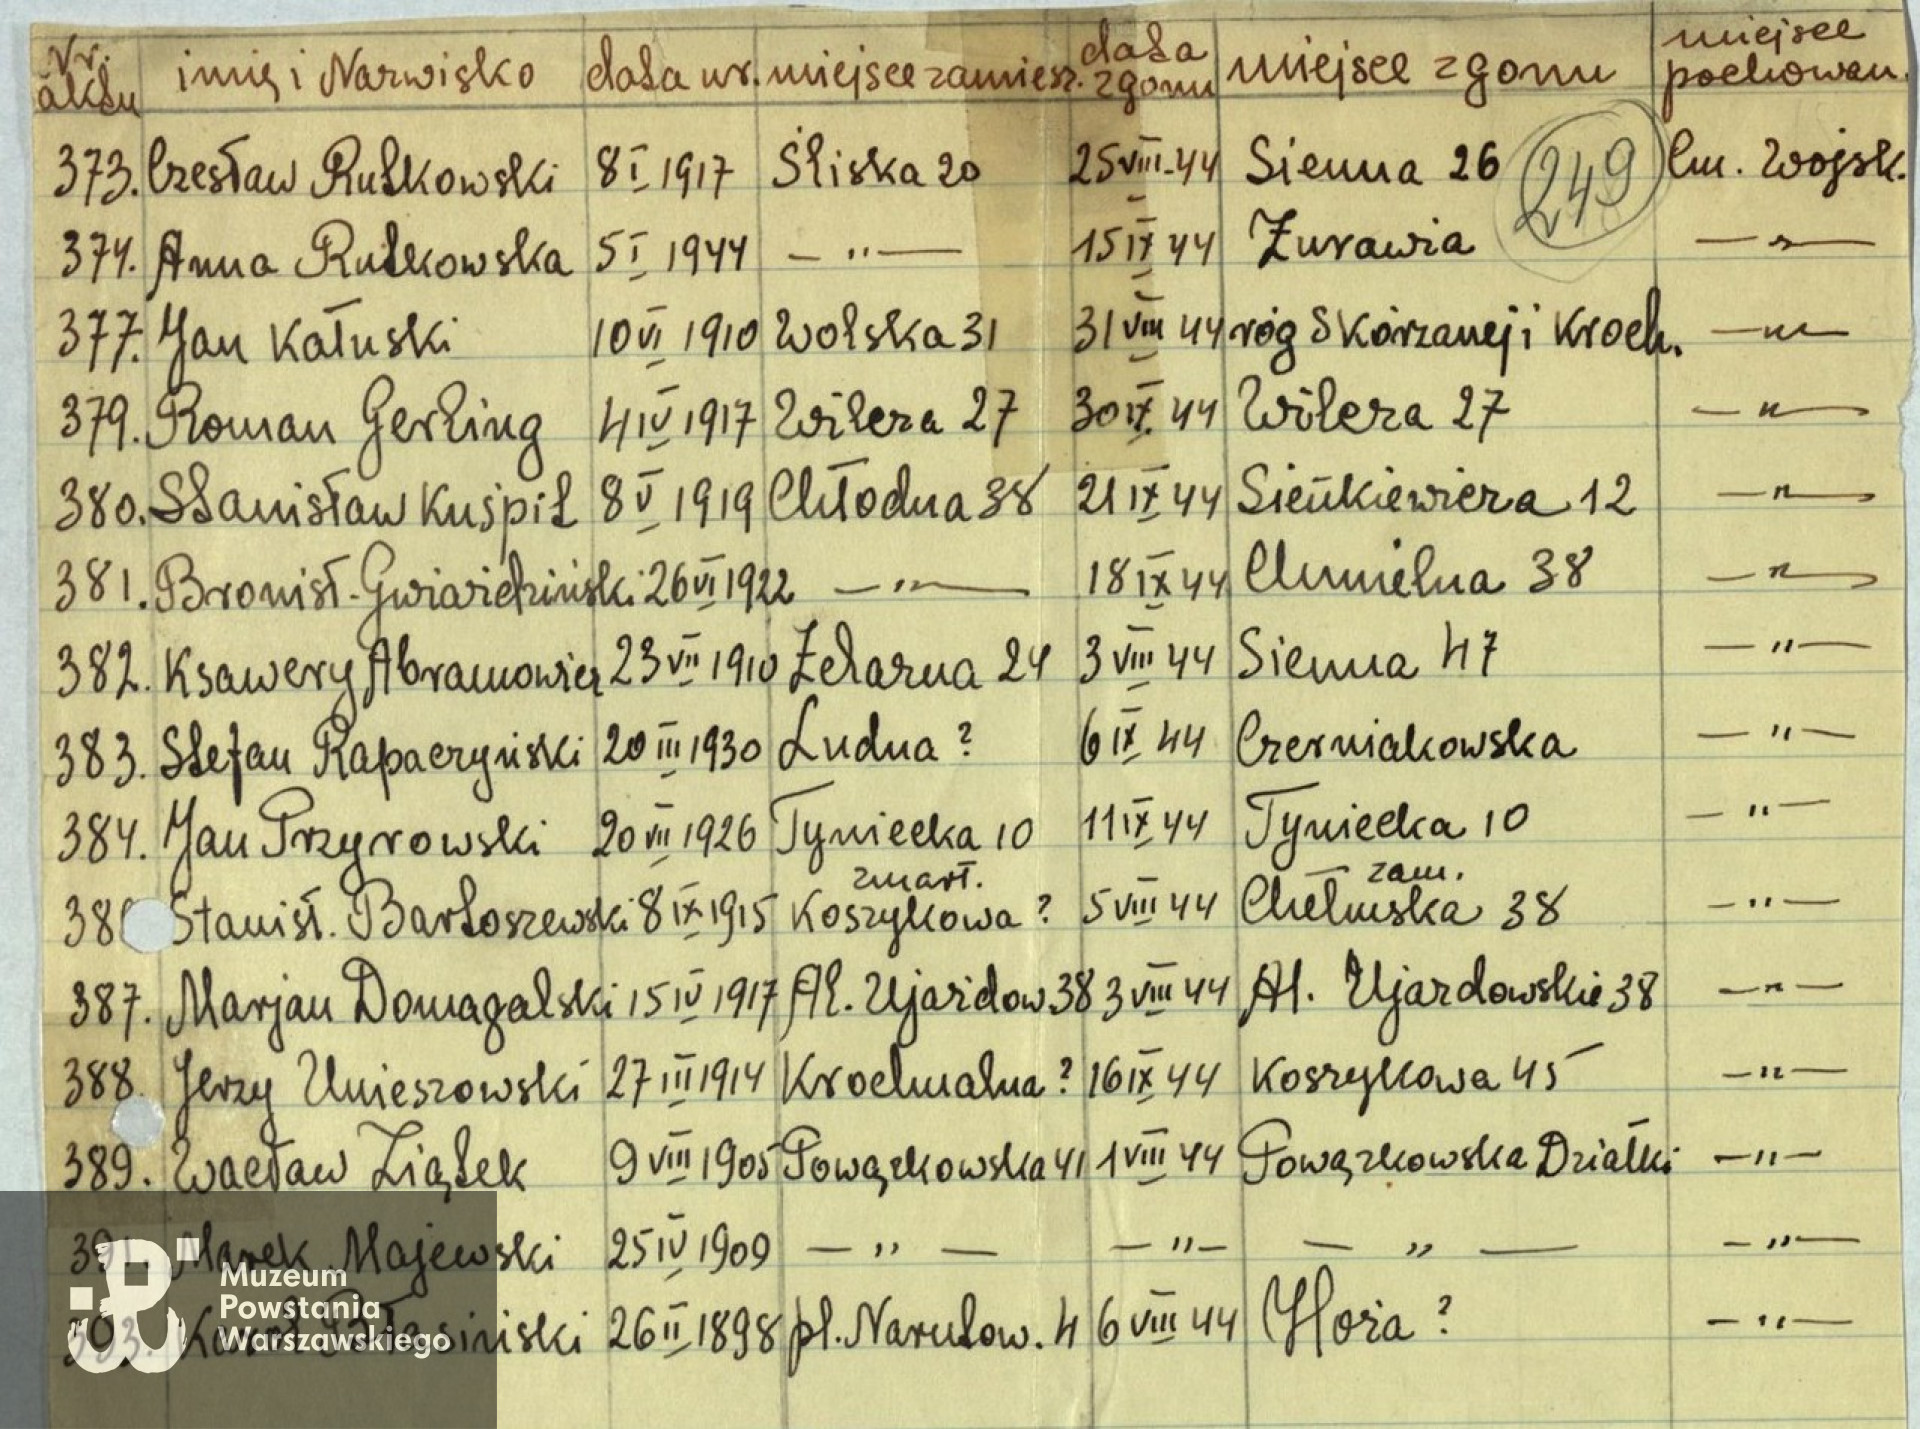 Nr. aktu imię i Nazwisko data ur. miejsce zamiesz. data zgonu miejsce zgonu miejsce pochowan.
249
373. Czesław Rutkowski 8 I 1917 Śliska 20 25 VIII 44 Sienna 26 Cm. Wojsk.
374. Anna Rutkowska 5 I 1944 — " — 15 IX 44 Żurawia — " —
377. Jan Kałuski 10 VI 1910 Wolska 31 31 VIII 44 róg Skórzanej i Kroch. — " —
379. Roman Gerling 4 IV 1917 Wilcza 27 30 IX 44 Wilcza 27 — " —
380. Stanisław Kuśpit 8 V 1919 Chłodna 38 21 IX 44 Sienkiewicza 12 — " —
381. Bronisł. Gwiaździński 26 VI 1922 — " — 18 IX 44 Chmielna 38 — " —
382. Ksawery Abramowicz 23 VII 1910 Żelazna 24 3 VIII 44 Sienna 47 — " —
383. Stefan Rapaczyński 20 III 1930 Ludna ? 6 IX 44 Czerniakowska — " —
384. Jan Przyrowski 20 VII 1926 Tyniecka 10 11 IX 44 Tyniecka 10 — " —
zmart. zam.
Stanisł. Bartoszewski 8 IX 1915 Koszykowa ? 5 VIII 44 Chełmska 38 — " —
387. Marjan Domagalski 15 IV 1917 Al. Ujazdow. 38 3 VIII 44 Al. Ujazdowskie 38 — " —
388. Jerzy Unieszowski 27 III 1914 Krochmalna ? 16 IX 44 Koszykowa 45 — " —
389. Wacław Ziątek 9 VIII 1905 Powązkowska 41 1 VIII 44 Powązkowska Działki — " —
391. Marek Majewski 25 IV 1909 — " — — " — — " — — " —
393. Karol 26 II 1898 pl. Narutow. 4 6 VIII 44 Hoża ? — " —
Muzeum
Powstania
Warszawskiego